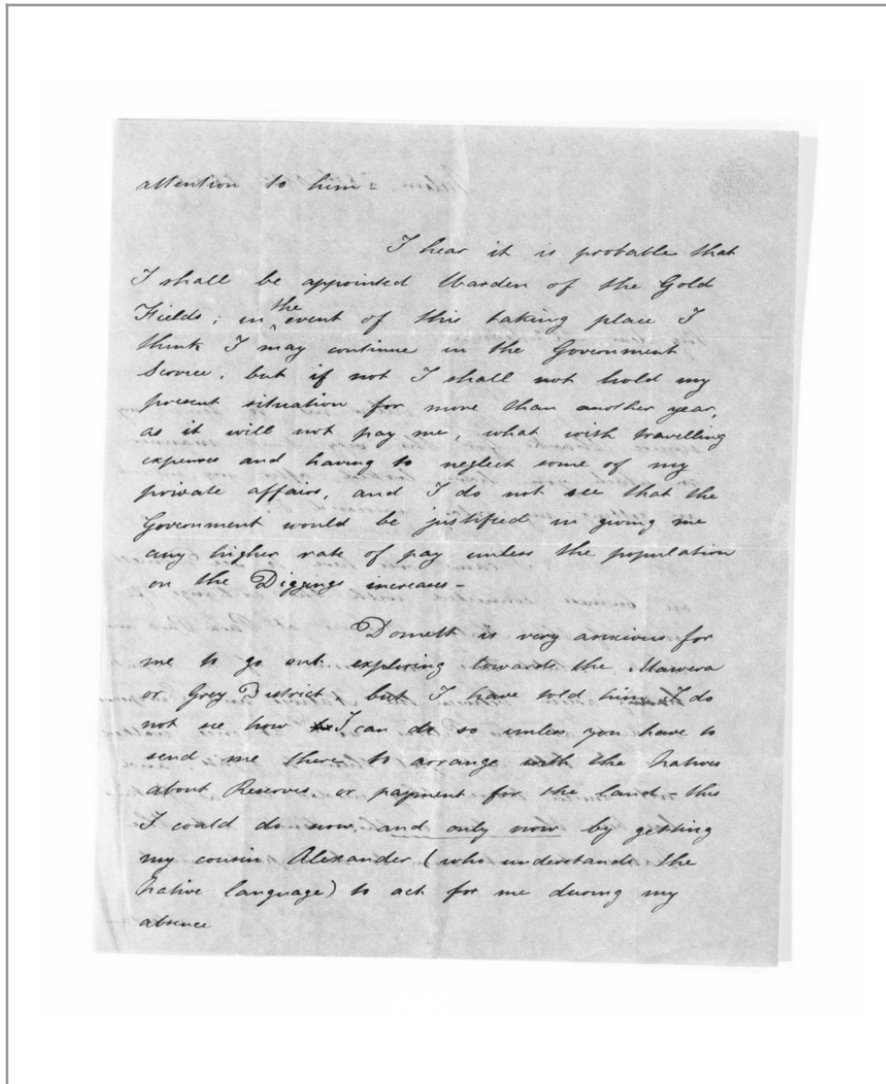 attention to him -
I hear it is probable that
I shall be appointed Warden of the Gold
Fields; in the event of this taking place I
think I may continue in the Government
Service, but if not I shall not hold my
present situation for more than another year,
as it will not pay me, what with travelling
expenses and having to neglect some of my
private affairs, and I do not see that the
Government would be justified in giving me
any higher rate of pay unless the population
on the Diggings increases -
Domett is very anxious for
me to go out exploring towards the Mawera
or Grey District but I have told him I do
not see how I can do so unless you have to
send me there to arrange with the Natives
about Reserves or payment for the land - this
I could do now, and only now by getting
my cousin Alexander (who understands the
Native language) to act for me during my
absence